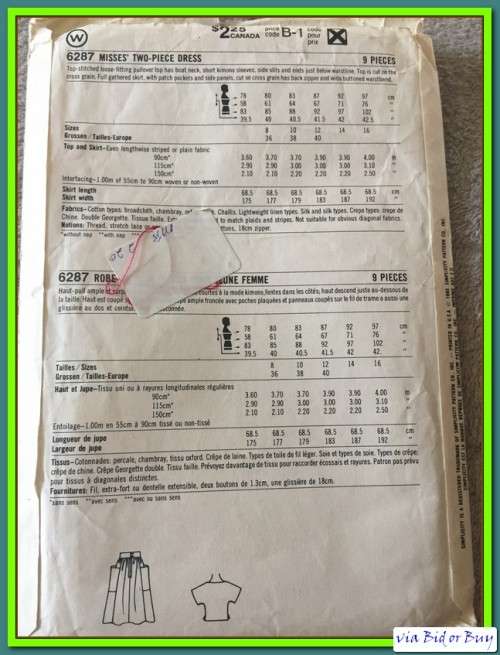 W $2.25 CANADA price code B-1 code pour prix X
6287 MISSES' TWO-PIECE DRESS 9 PIECES
Top-stitched loose-fitting pullover top has boat neck, short kimono sleeves, side slits and ends just below waistline. Top is cut on the
cross grain. Full gathered skirt, with patch pockets and side panels, cut on cross grain has back zipper and wide buttoned waistband.
78 80 83 87 92 97 cm
58 61 64 67 71 76 "
83 85 88 92 97 102 "
39.5 40 40.5 41.5 42 42.5 "
Sizes 8 10 12 14 16
Grossen/Tailles-Europe 36 38 40
Top and Skirt-Even lengthwise striped or plain fabric
90cm* 3.60 3.70 3.70 3.90 3.90 4.00 m
115cm* 2.90 2.90 3.00 3.00 3.00 3.10 "
150cm* 2.10 2.10 2.20 2.20 2.20 2.50 "
Interfacing-1.00m of 55cm to 90cm woven or non-woven
Skirt length 68.5 68.5 68.5 68.5 68.5 68.5 cm
Skirt width 175 177 179 183 187 192 "
Fabrics-Cotton types: broadcloth, chambray, Challis. Lightweight linen types. Silk and silk types. Crepe types: crepe de
Chine. Double Georgette. Tissue taille. to match plaids and stripes. Not suitable for obvious diagonal fabrics.
Notions: Thread, stretch lace buttons, 18cm zipper.
*without nap **with nap
6287 ROBE JEUNE FEMME 9 PIECES
Haut-pull ample et courtes à la mode kimono, fentes dans les côtés; haut descend juste au-dessous de
la taille. Haut est coupé ample froncée avec poches plaquées et panneaux coupés sur le fil de trame a aussi une
glissière au dos et ceinture boutonnée.
78 80 83 87 92 97 cm
58 61 64 67 71 76 "
83 85 88 92 97 102 "
39.5 40 40.5 41.5 42 42. "
Tailles/Sizes 8 10 12 14 16
Grossen/Tailles-Europe 36 38 40
Haut et Jupe-Tissu uni ou à rayures longitudinales régulières
90cm* 3.60 3.70 3.70 3.90 3.90 4.00 m
115cm* 2.90 2.90 3.00 3.00 3.00 3.10 "
150cm* 2.10 2.10 2.20 2.20 2.20 2.50 "
Entoilage-1.00m en 55cm à 90cm tissé ou non-tissé
Longueur de jupe 68.5 68.5 68.5 68.5 68.5 68.5 cm
Largeur de jupe 175 177 179 183 187 192 "
Tissus-Cotonnades: percale, chambray, tissu oxford. Crêpe de laine. Types de toile de fil léger. Soie et types de soie. Types de crêpe:
crêpe de chine. Crêpe Georgette double. Tissu taille. Prévoyez davantage de tissu pour raccorder écossais et rayures. Patron pas prévu
pour tissus à diagonales distinctes.
Fournitures: Fil, extra-fort ou dentelle extensible, deux boutons de 1.3cm, une glissière de 18cm.
*sans sens **avec sens ***avec ou sans sens
via Bid or Buy